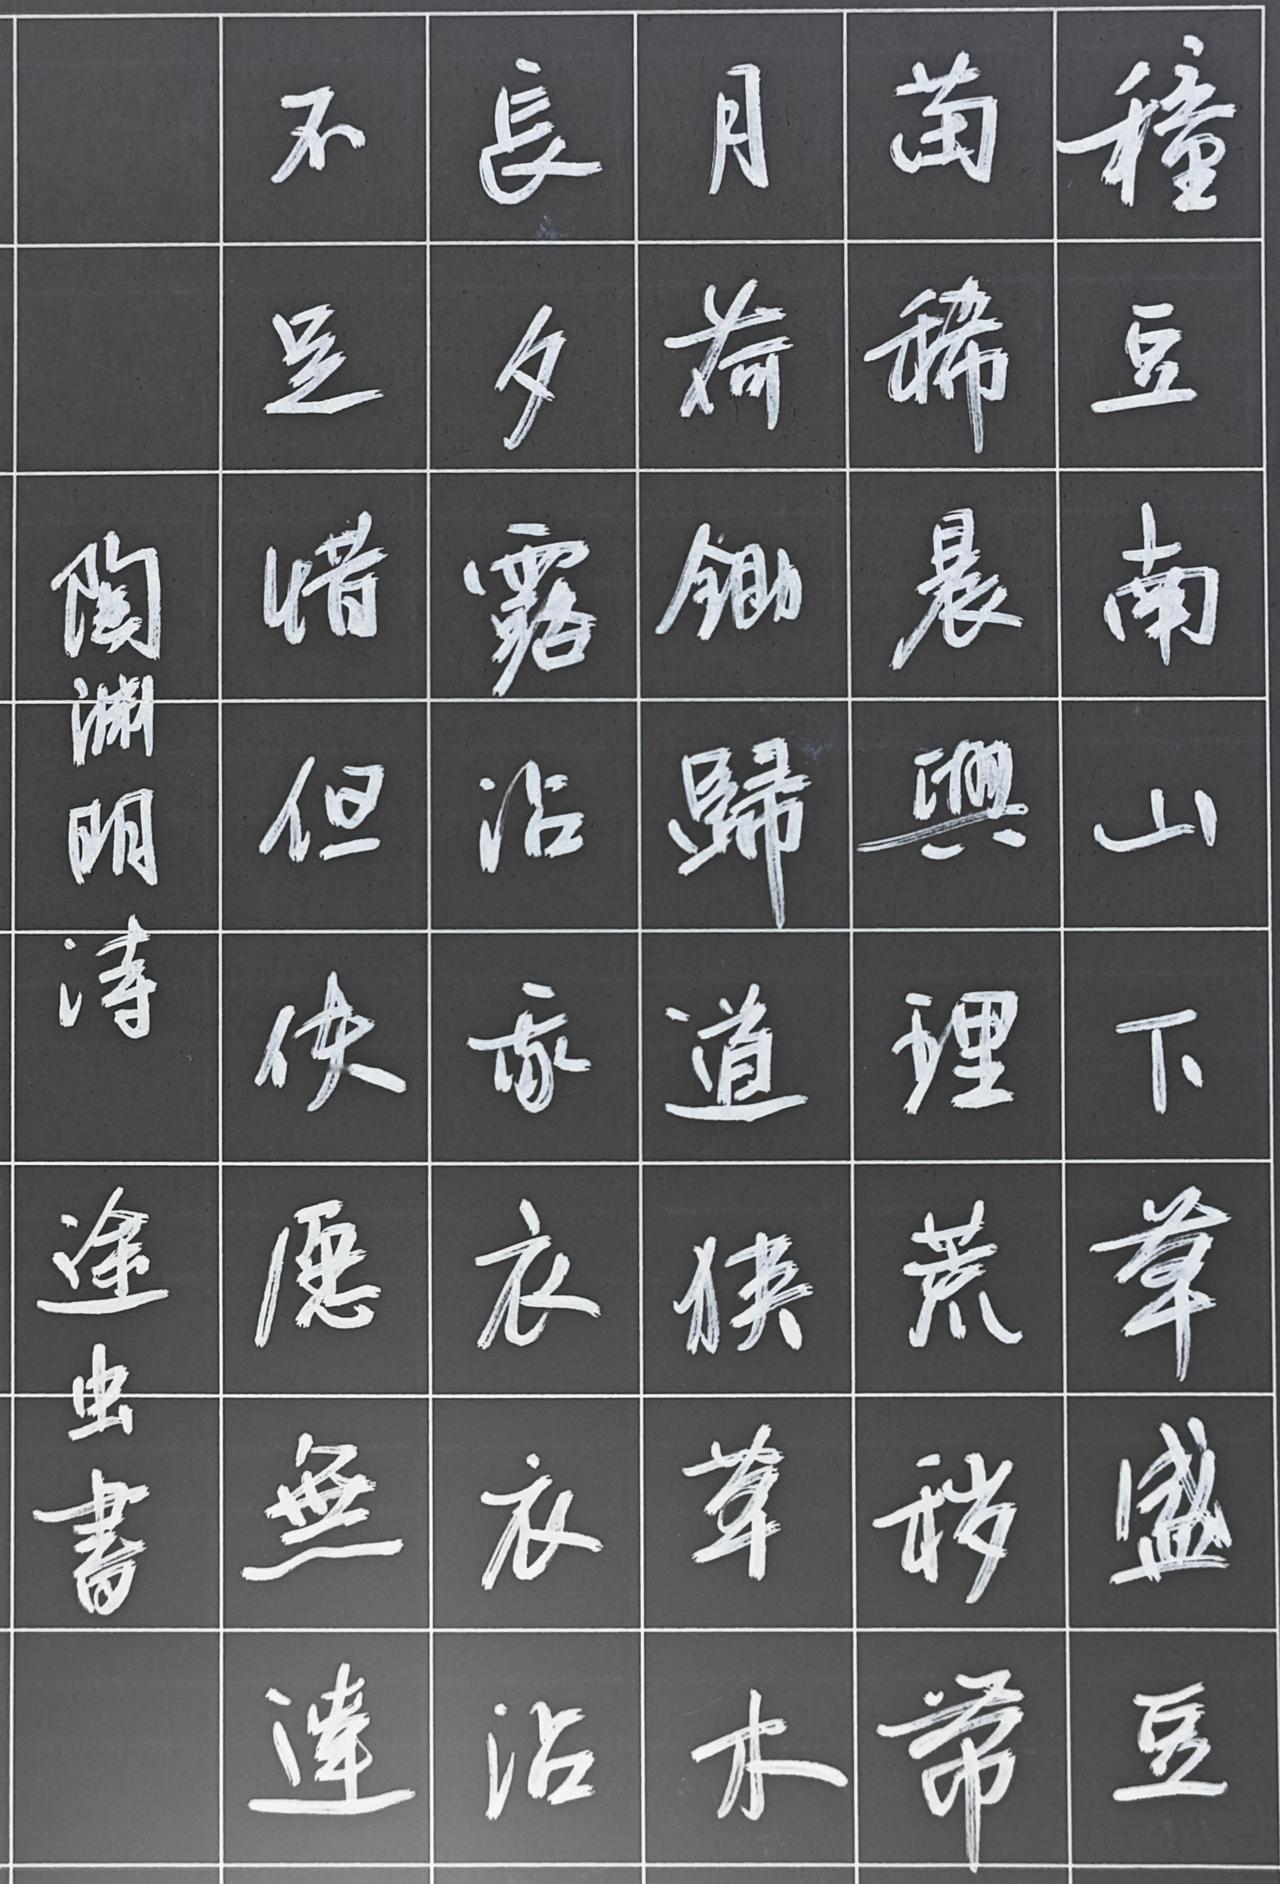 種豆南山下草盛豆
苗稀晨興理荒穢帶
月荷鋤歸道狹草木
長夕露沾我衣衣沾
不足惜但使愿無違
陶淵明詩 途虫書